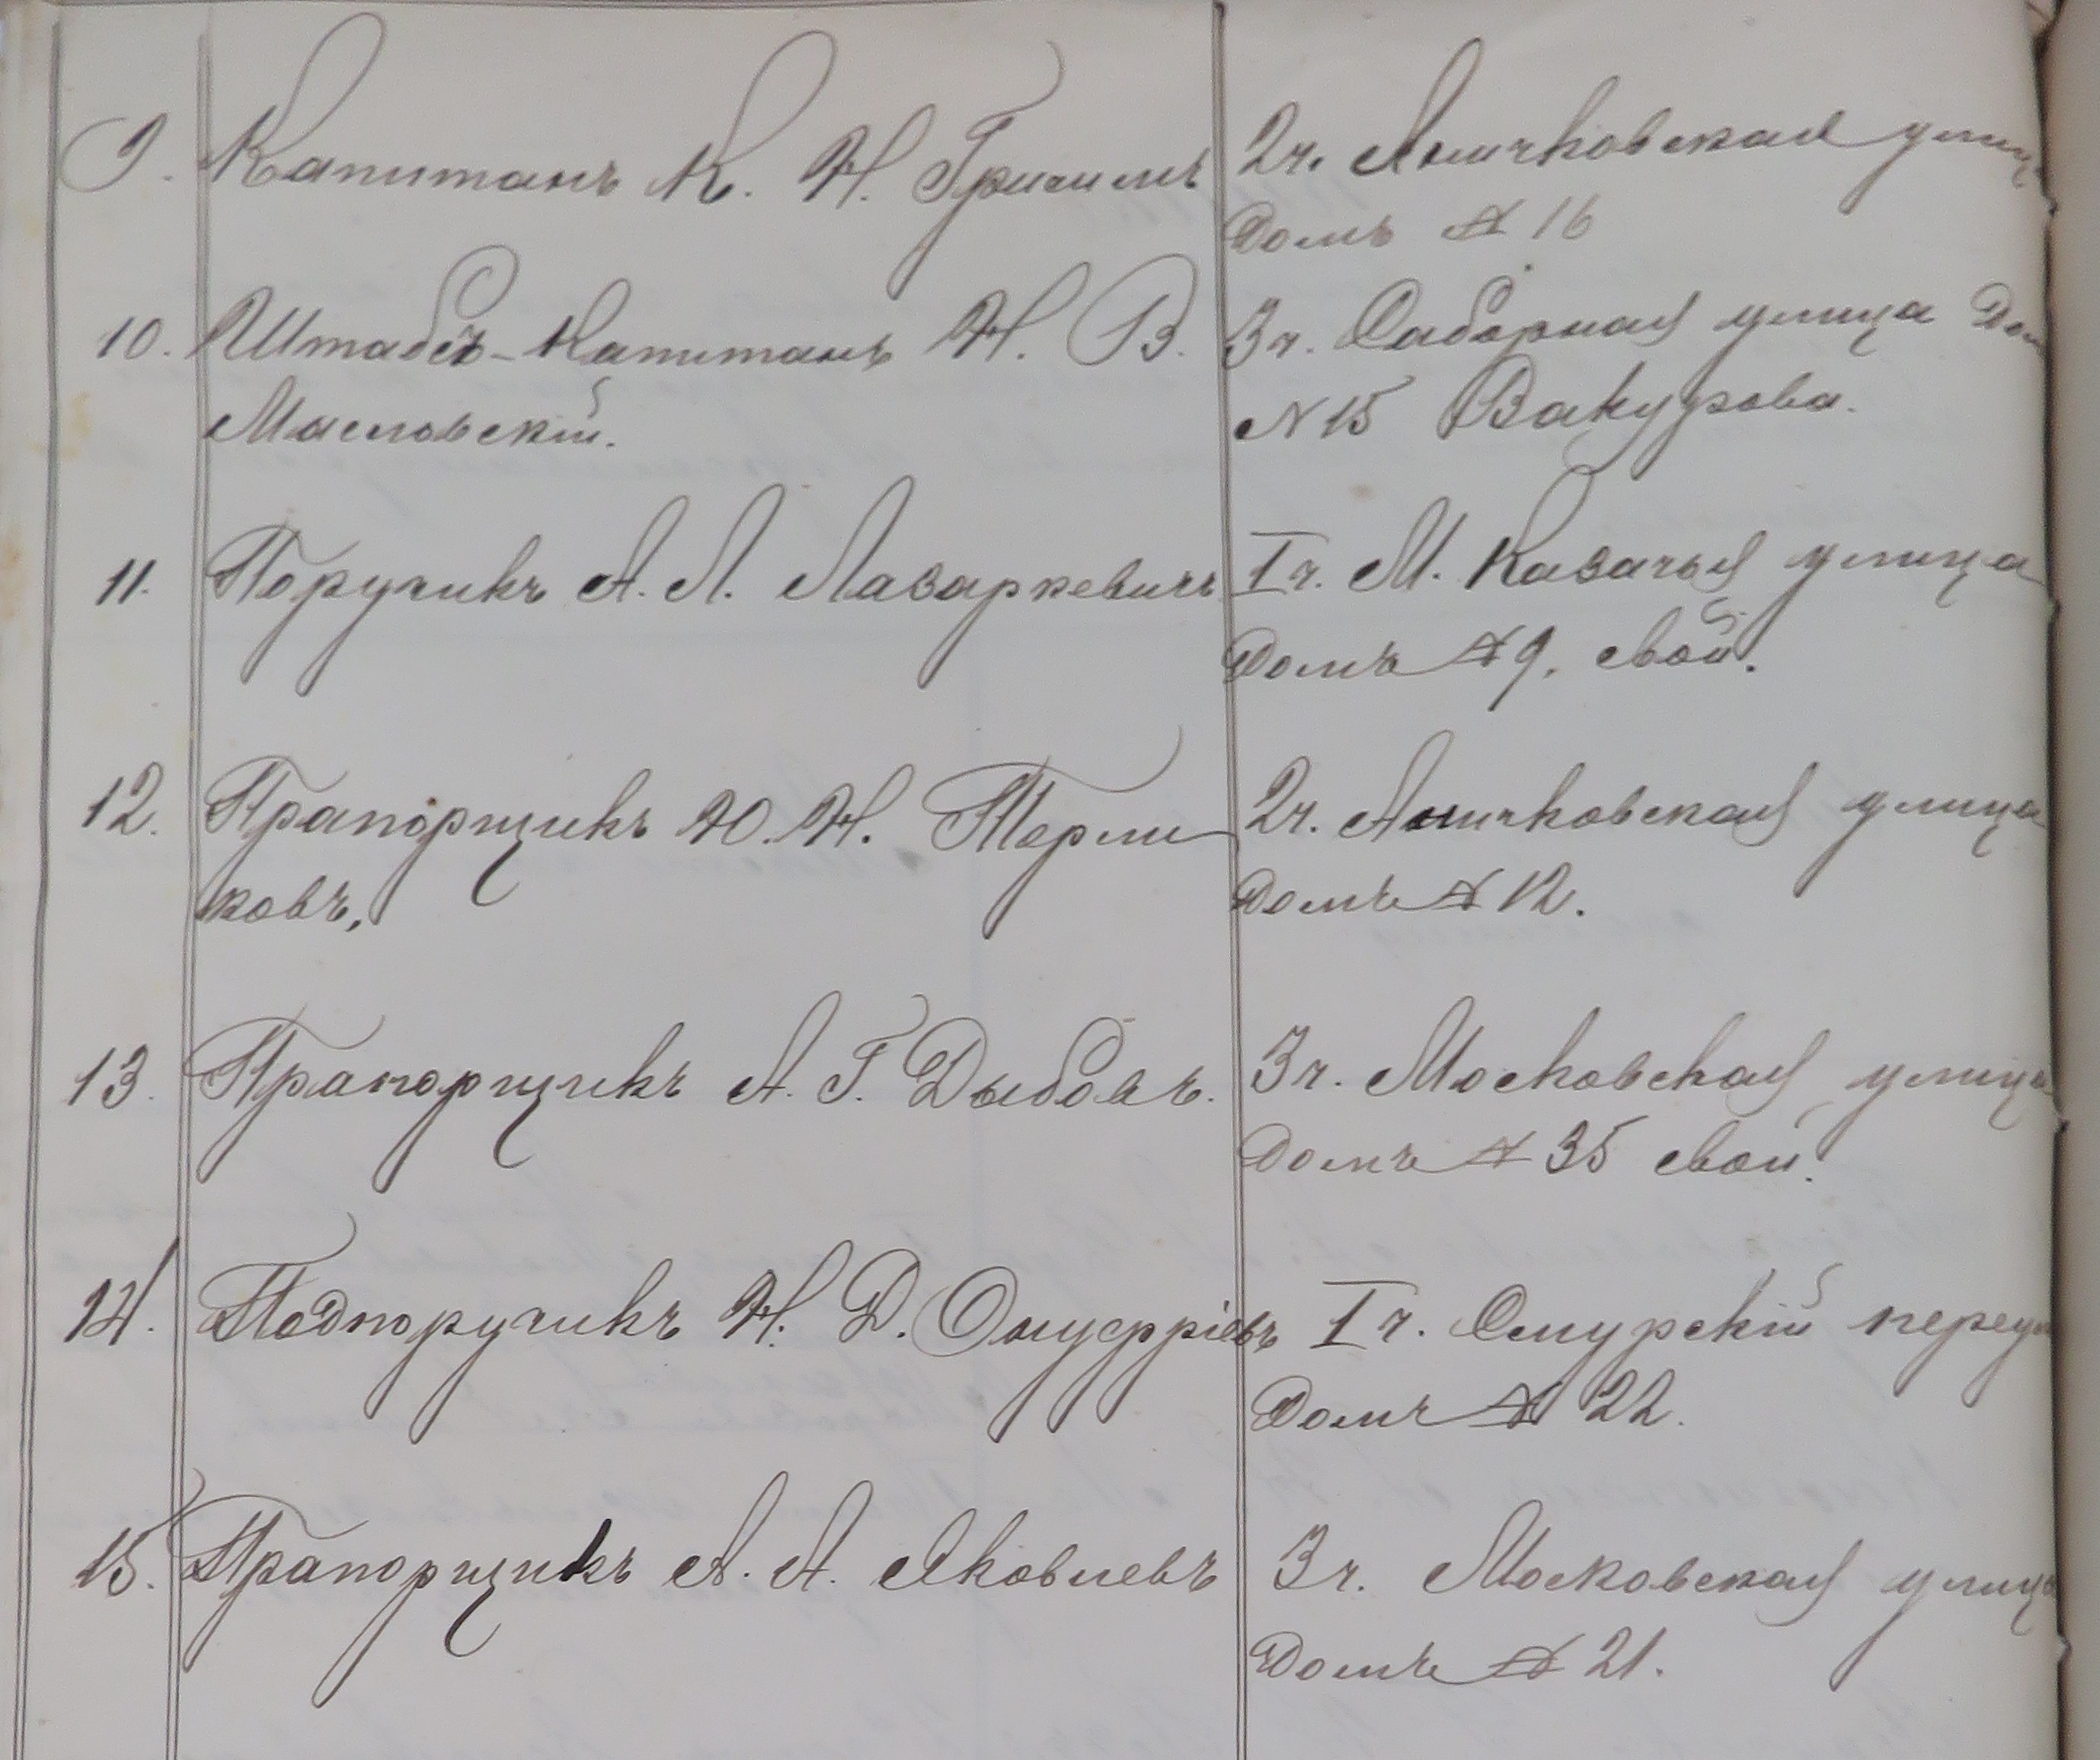 9. Капитанъ К. Н. 2ч. Аничковская улиц
Домъ № 16
10. Штабсъ-Капитанъ Н. В. 3ч. Саборная улица Дом
Масловскій. № 15 Вакурова.
11. Поручикъ А. Л. Лазаркевичъ Iч. М. Казачья улица
Домъ № 9. свой.
12. Прапорщикъ Ю. Н. Терли 2ч. Аничковская улица
ковъ, Домъ № 12.
13. Прапорщикъ А. Г. Дыбовъ. 3ч. Московская улица
Домъ № 35 свой.
14. Подпоручикъ Н. Д. Онуфріевъ Iч. переул
Домъ № 22.
15. Прапорщикъ А. А. Яковлевъ 3ч. Московская улица
Домъ № 21.